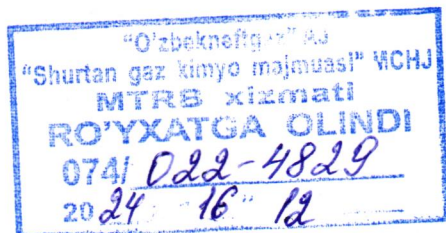 "O'zbekneftgaz" AJ
"Shurtan gaz kimyo majmuasi" MCHJ
MTRB xizmati
RO'YXATGA OLINDI
074/ 022-4829
20 24 "16" 12